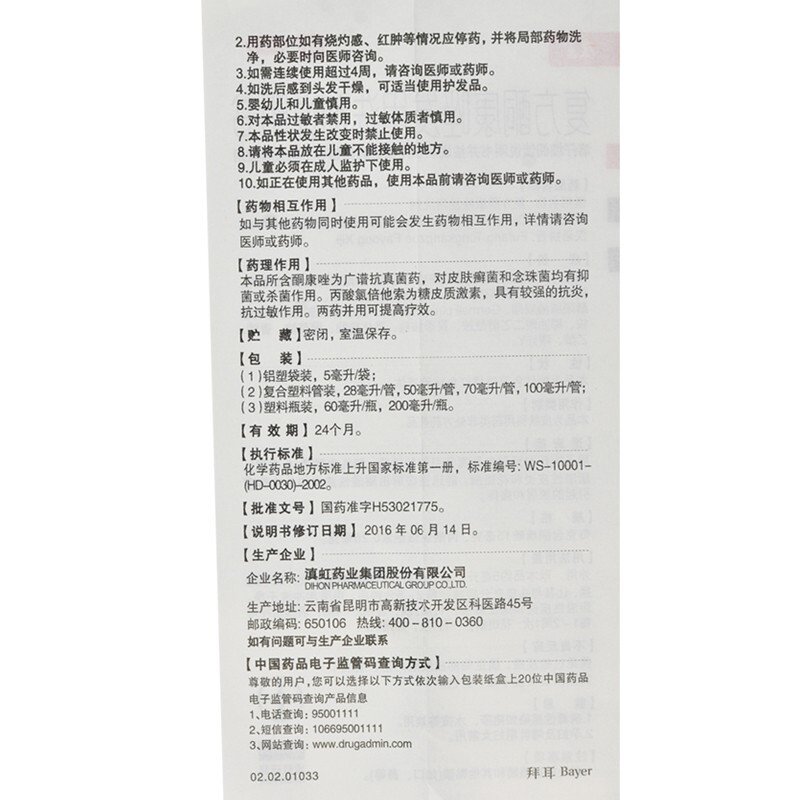 2.用药部位如有烧灼感、红肿等情况应停药，并将局部药物洗
净，必要时向医师咨询。
3.如需连续使用超过4周，请咨询医师或药师。
4.如洗后感到头发干燥，可适当使用护发品。
5.婴幼儿和儿童慎用。
6.对本品过敏者禁用，过敏体质者慎用。
7.本品性状发生改变时禁止使用。
8.请将本品放在儿童不能接触的地方。
9.儿童必须在成人监护下使用。
10.如正在使用其他药品，使用本品前请咨询医师或药师。
【药物相互作用】
如与其他药物同时使用可能会发生药物相互作用，详情请咨询
医师或药师。
【药理作用】
本品所含酮康唑为广谱抗真菌药，对皮肤癣菌和念珠菌均有抑
菌或杀菌作用。丙酸氯倍他索为糖皮质激素，具有较强的抗炎，
抗过敏作用。两药并用可提高疗效。
【贮 藏】密闭，室温保存。
【包 装】
（1）铝塑袋装，5毫升/袋；
（2）复合塑料管装，28毫升/管，50毫升/管，70毫升/管，100毫升/管；
（3）塑料瓶装，60毫升/瓶，200毫升/瓶。
【有 效 期】24个月。
【执行标准】
化学药品地方标准上升国家标准第一册，标准编号：WS-10001-
(HD-0030)-2002。
【批准文号】国药准字H53021775。
【说明书修订日期】2016 年 06 月 14 日。
【生产企业】
企业名称：滇虹药业集团股份有限公司
DIHON PHARMACEUTICAL GROUP CO.,LTD.
生产地址：云南省昆明市高新技术开发区科医路45号
邮政编码：650106 热线：400－810－0360
如有问题可与生产企业联系
【中国药品电子监管码查询方式】
尊敬的用户，您可以选择以下方式依次输入包装纸盒上20位中国药品
电子监管码查询产品信息
1、电话查询：95001111
2、短信查询：106695001111
3、网站查询：www.drugadmin.com
02.02.01033
拜耳 Bayer